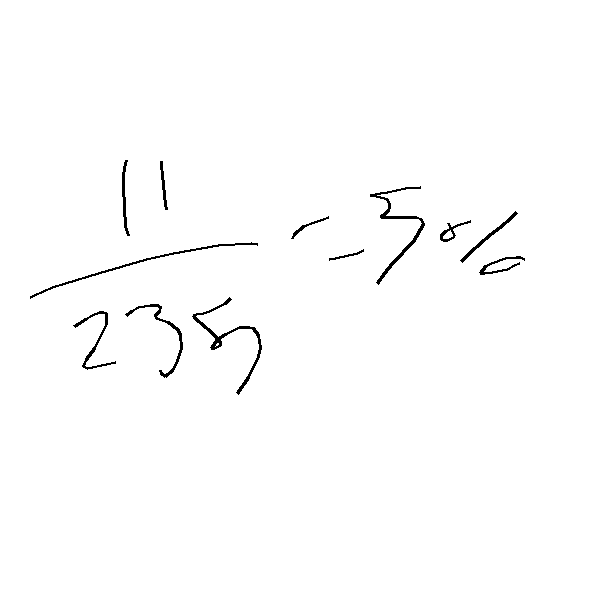 11
235
=5%